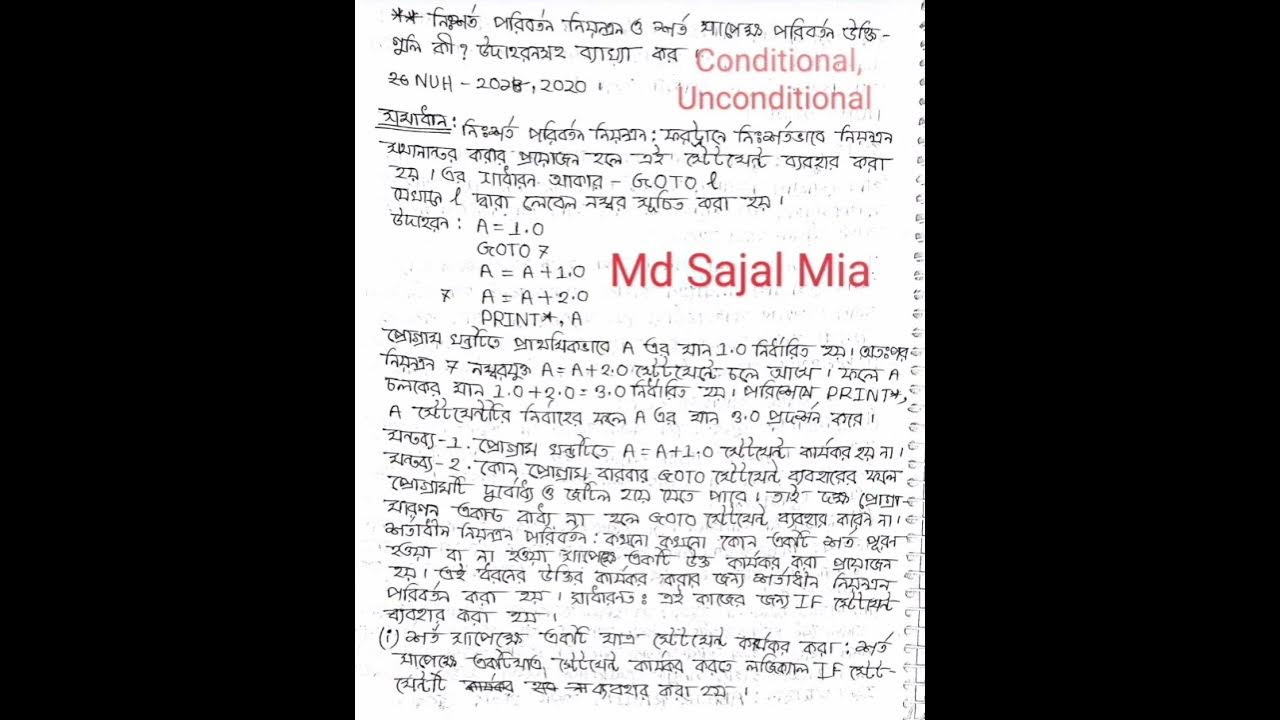 ** নিঃশর্ত পরিবর্তন নিয়ন্ত্রন ও শর্ত সাপেক্ষে পরিবর্তন উক্তি-
গুলি কী? উদাহরনসহ ব্যাখ্যা কর।
Conditional,
NUH - 2020।
Unconditional
সমাধান: নিঃশর্ত পরিবর্তন নিয়ন্ত্রন: ফরট্রানে নিঃশর্তভাবে নিয়ন্ত্রন
করার প্রয়োজন হলে এই স্টেটমেন্ট ব্যবহার করা
হয়। এর সাধারন আকার - GOTO l
যেখানে l দ্বারা লেবেল নম্বর সূচিত করা হয়।
উদাহরন: A = 1.0
GOTO 7
A = A + 1.0
Md Sajal Mia
7 A = A + 2.0
PRINT*, A
প্রোগ্রাম খন্ডটিতে প্রাথমিকভাবে A এর মান 1.0 নির্ধারিত হয়। অতঃপর
নিয়ন্ত্রন 7 নম্বরযুক্ত A = A + 2.0 স্টেটমেন্টে চলে আসে। ফলে A
চলকের মান 1.0 + 2.0 = 3.0 নির্ধারিত হয়। পরিশেষে PRINT*,
A স্টেটমেন্টটির নির্বাহের ফলে A এর মান 3.0 প্রদর্শন করে।
মন্তব্য-1. প্রোগ্রাম খন্ডটিতে A = A + 1.0 স্টেটমেন্ট কার্যকর হয় না।
মন্তব্য-2. কোন প্রোগ্রামে বারবার GOTO স্টেটমেন্ট ব্যবহারের ফলে
প্রোগ্রামটি দুর্বোধ্য ও জটিল হয়ে যেতে পারে। তাই দক্ষ প্রোগ্রা-
মারগন একান্ত বাধ্য না হলে GOTO স্টেটমেন্ট ব্যবহার করেন না।
শর্তাধীন নিয়ন্ত্রন পরিবর্তন: কখনো কখনো কোন একটি শর্ত পূরন
হওয়া বা না হওয়া সাপেক্ষে একটি উক্ত কার্যকর করা প্রয়োজন
হয়। এই ধরনের উক্তির কার্যকর করার জন্য শর্তাধীন নিয়ন্ত্রন
পরিবর্তন করা হয়। সাধারনতঃ এই কাজের জন্য IF স্টেটমেন্ট
ব্যবহার করা হয়।
(i) শর্ত সাপেক্ষে একটি মাত্র স্টেটমেন্ট কার্যকর করা: শর্ত
সাপেক্ষে একটিমাত্র স্টেটমেন্ট কার্যকর করতে লজিক্যাল IF স্টেট-
মেন্টটি ব্যবহার করা হয়।